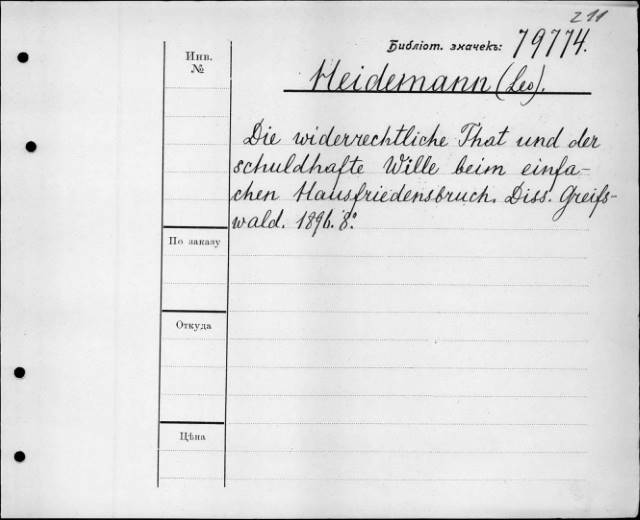 211
Библіот. значекъ: 79774.
Инв.
№
Heidemann (Leo).
Die widerrechtliche That und der
schuldhafte Wille beim einfa-
chen Hausfriedensbruch. Diss. Greifs-
wald. 1896. 8º
По заказу
Откуда
Цѣна